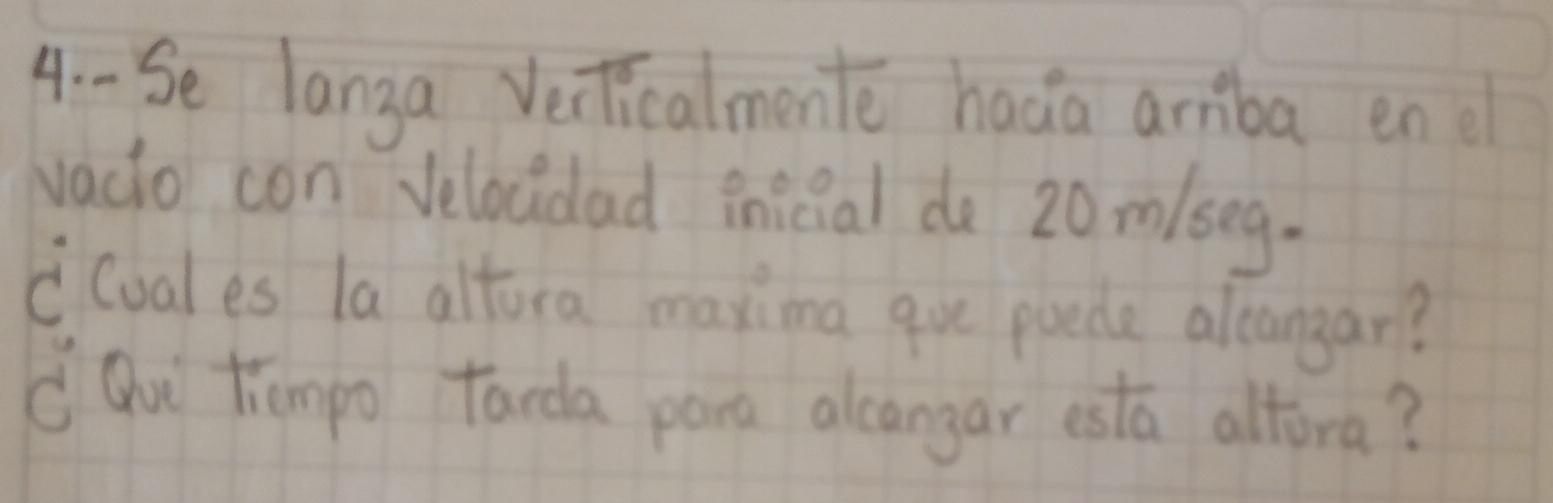 4.- Se lanza verticalmente hacia arriba en el
vacio con velocidad inicial de 20 m/seg.
¿Cual es la altura maxima que puede alcanzar?
¿Que tiempo tarda para alcanzar esta altura?